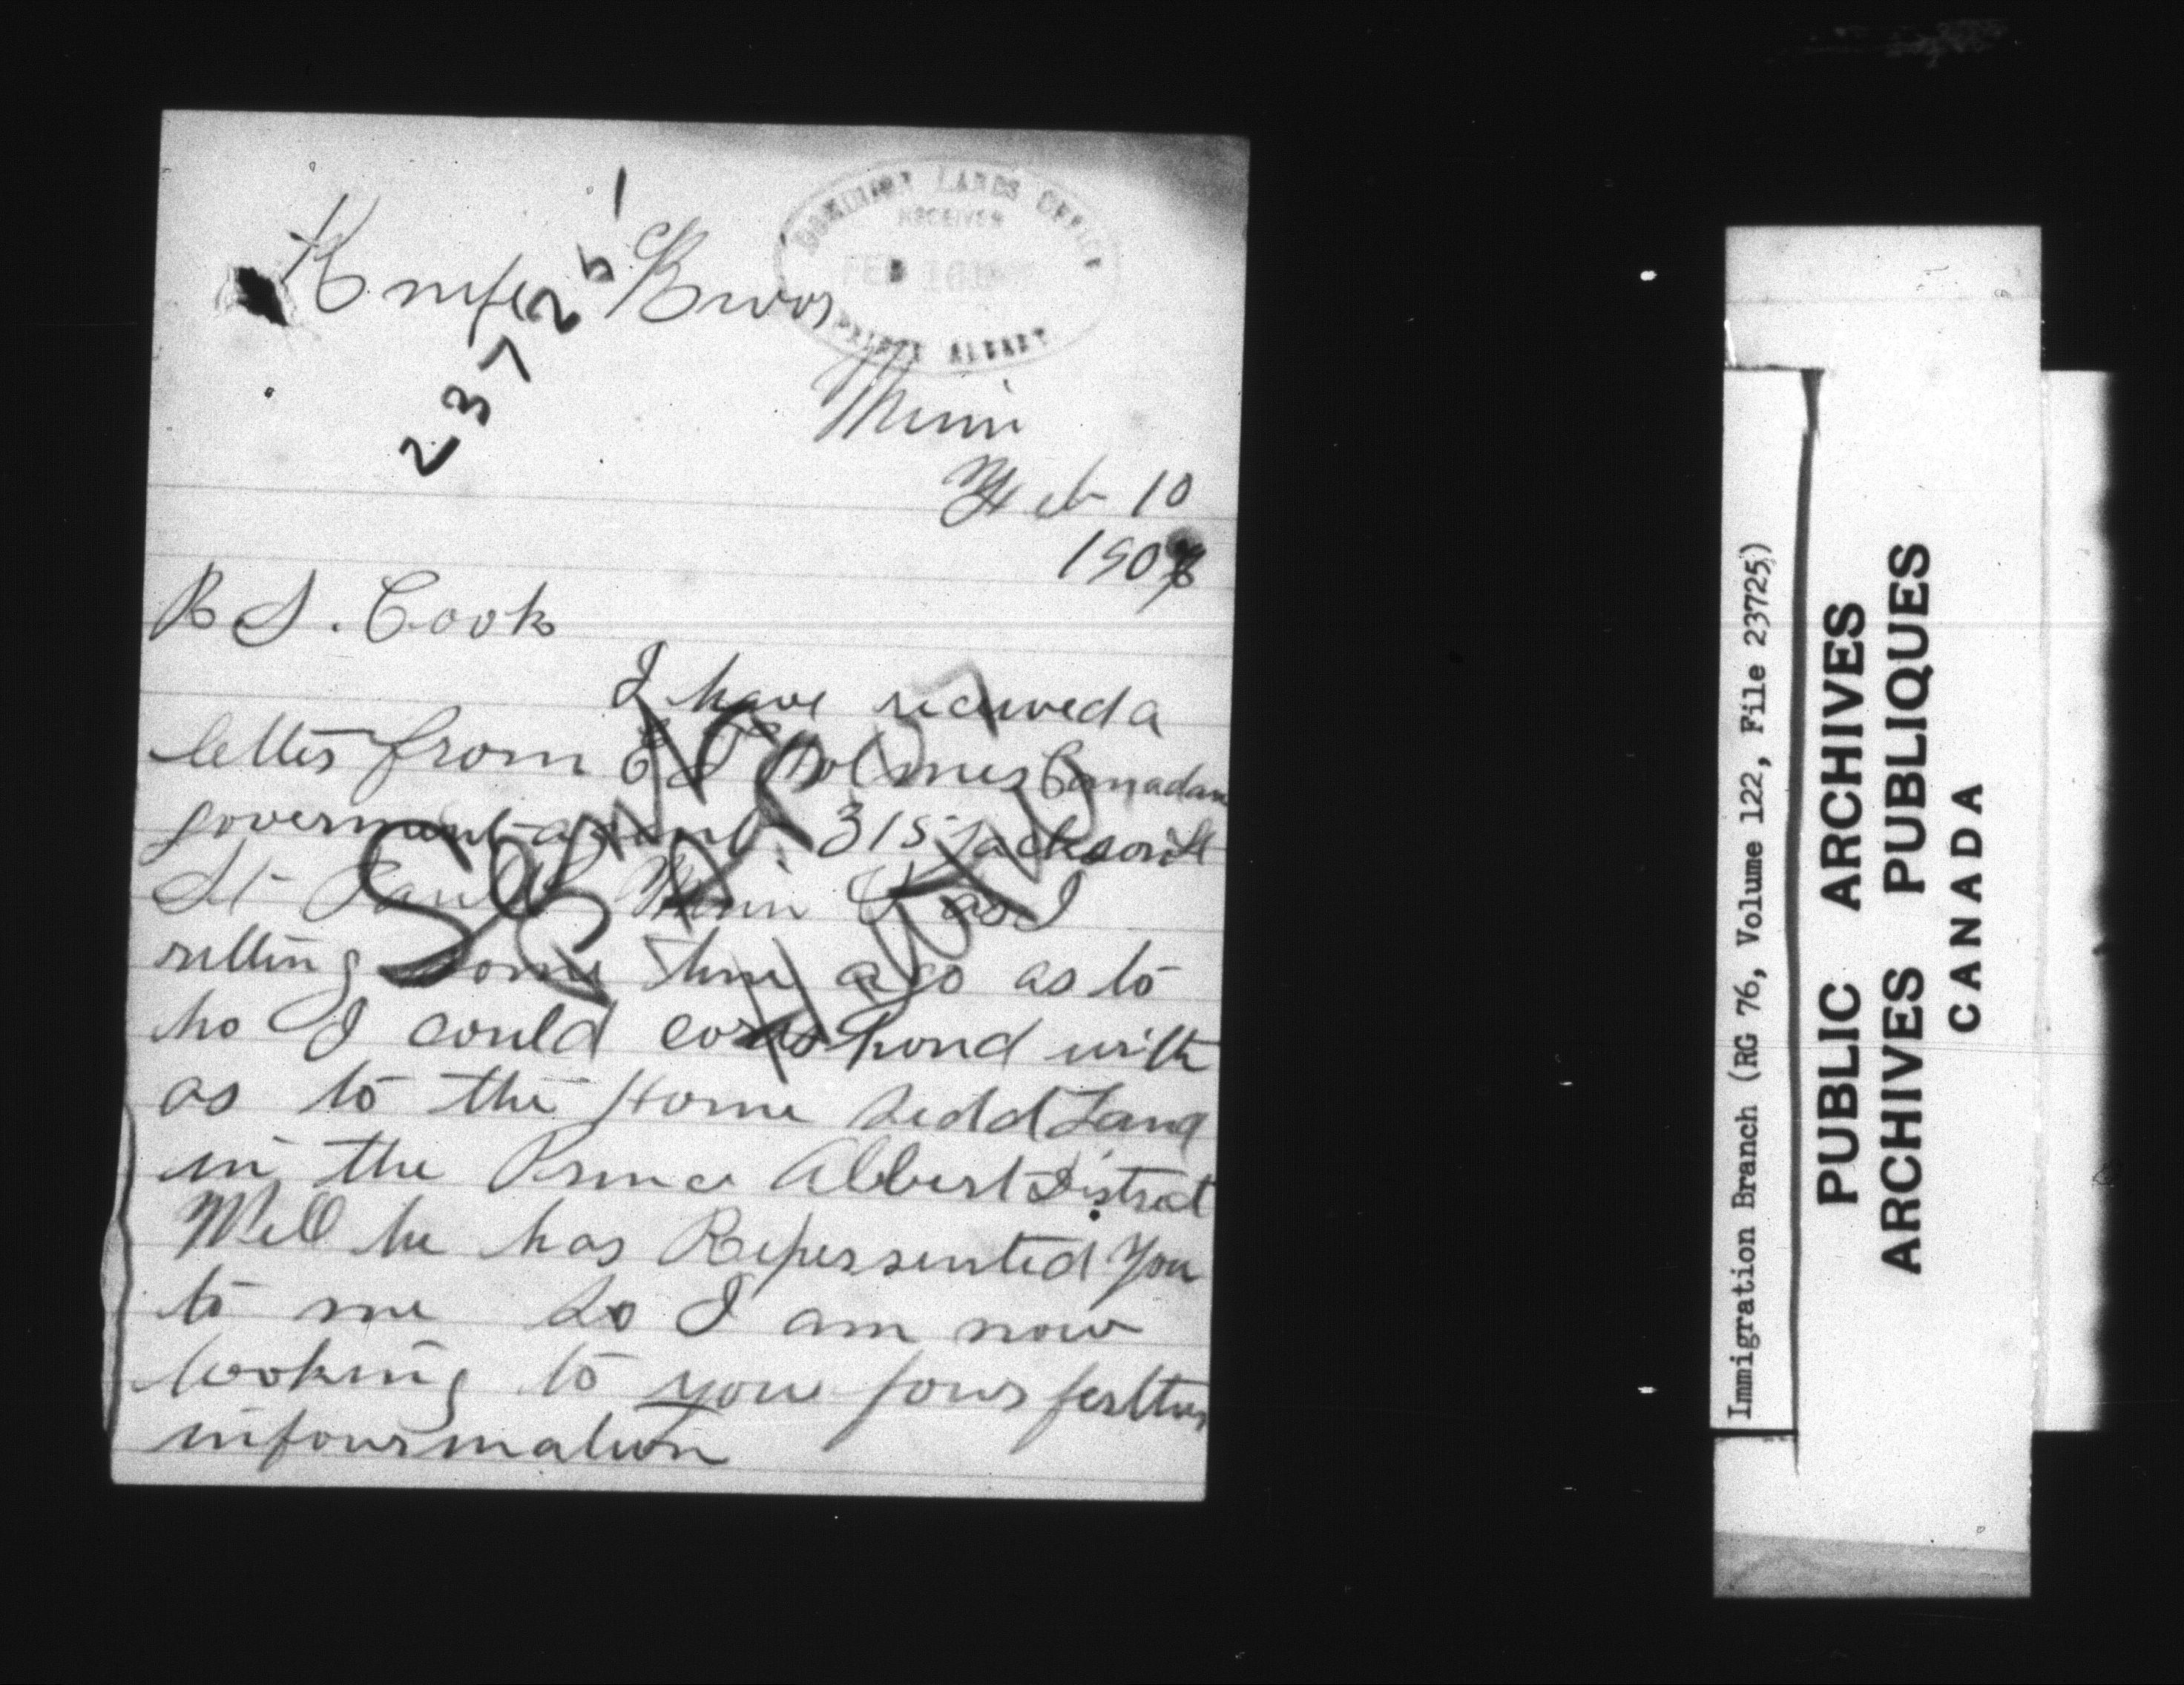 Knife Rivor
237251
DOMINION LANDS OFFICE
RECEIVED
FEB 16
PRINCE ALBERT
Minn
Feb 10
1908
R S. Cook
I have recieved a
letter from E T Holmes Canadan
goverment agent 315 Jackson St
St Paull Minn as I
ritting some time ago as to
ho I could corispond with
as to the Home Sedd Land
in the Prince Albbert District
Well he has Repersented you
to me So I am now
looking to your fours
infourmation
SENT
Immigration Branch (RG 76, Volume 122, File 23725)
PUBLIC ARCHIVES
ARCHIVES PUBLIQUES
CANADA